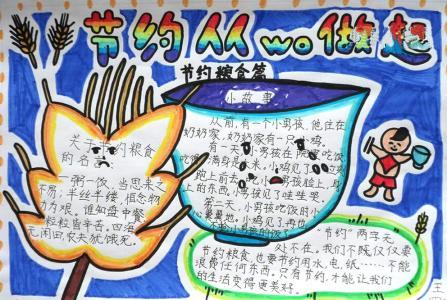 节约从wo做起
节约粮食篇
小故事
从前,有一个小男孩,他住在
奶奶家,奶奶家有一只小鸡。
有一天,小男孩在院
吃饭
吃饭
满身是
米。小鸡见了
跑上前去
吃小
男孩脸上,身
上的东西,小男孩见了哇哇哭。
第二天,小男孩吃饭的小
小鸡见了再也
不
小男孩的
关于节约粮食
的名言
一粥一饭,当思来之
不易;半丝半缕,恒念物
力为艰。谁知盘中餐
粒粒皆辛苦。四海
无闲田,农夫犹饿死。
“节约”两字无
处不在。我们不能仅仅要
节约粮食,也要节约用水,电,纸……不能
浪费任何东西。只有节约,才能让我们
的生活变得更美好。